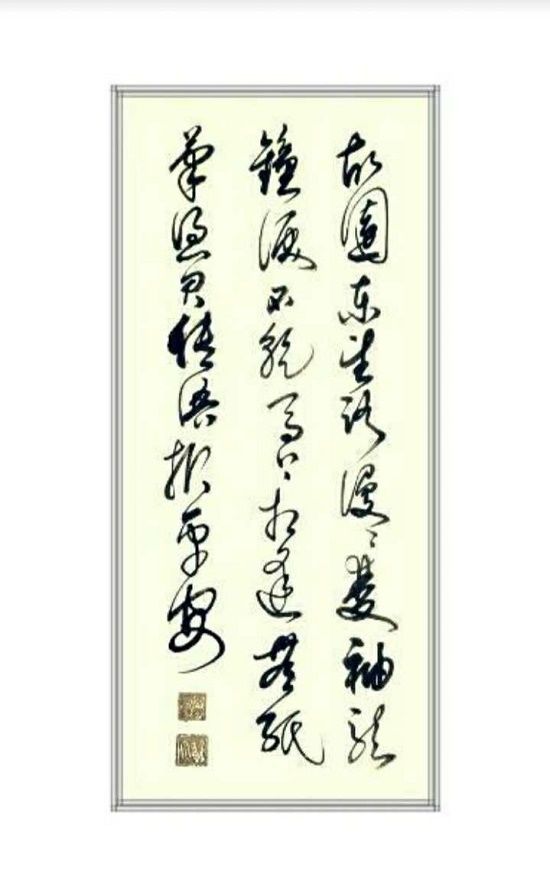 故園東望路漫漫雙袖龍
鐘淚不乾馬上相逢無紙
筆憑君傳語報平安